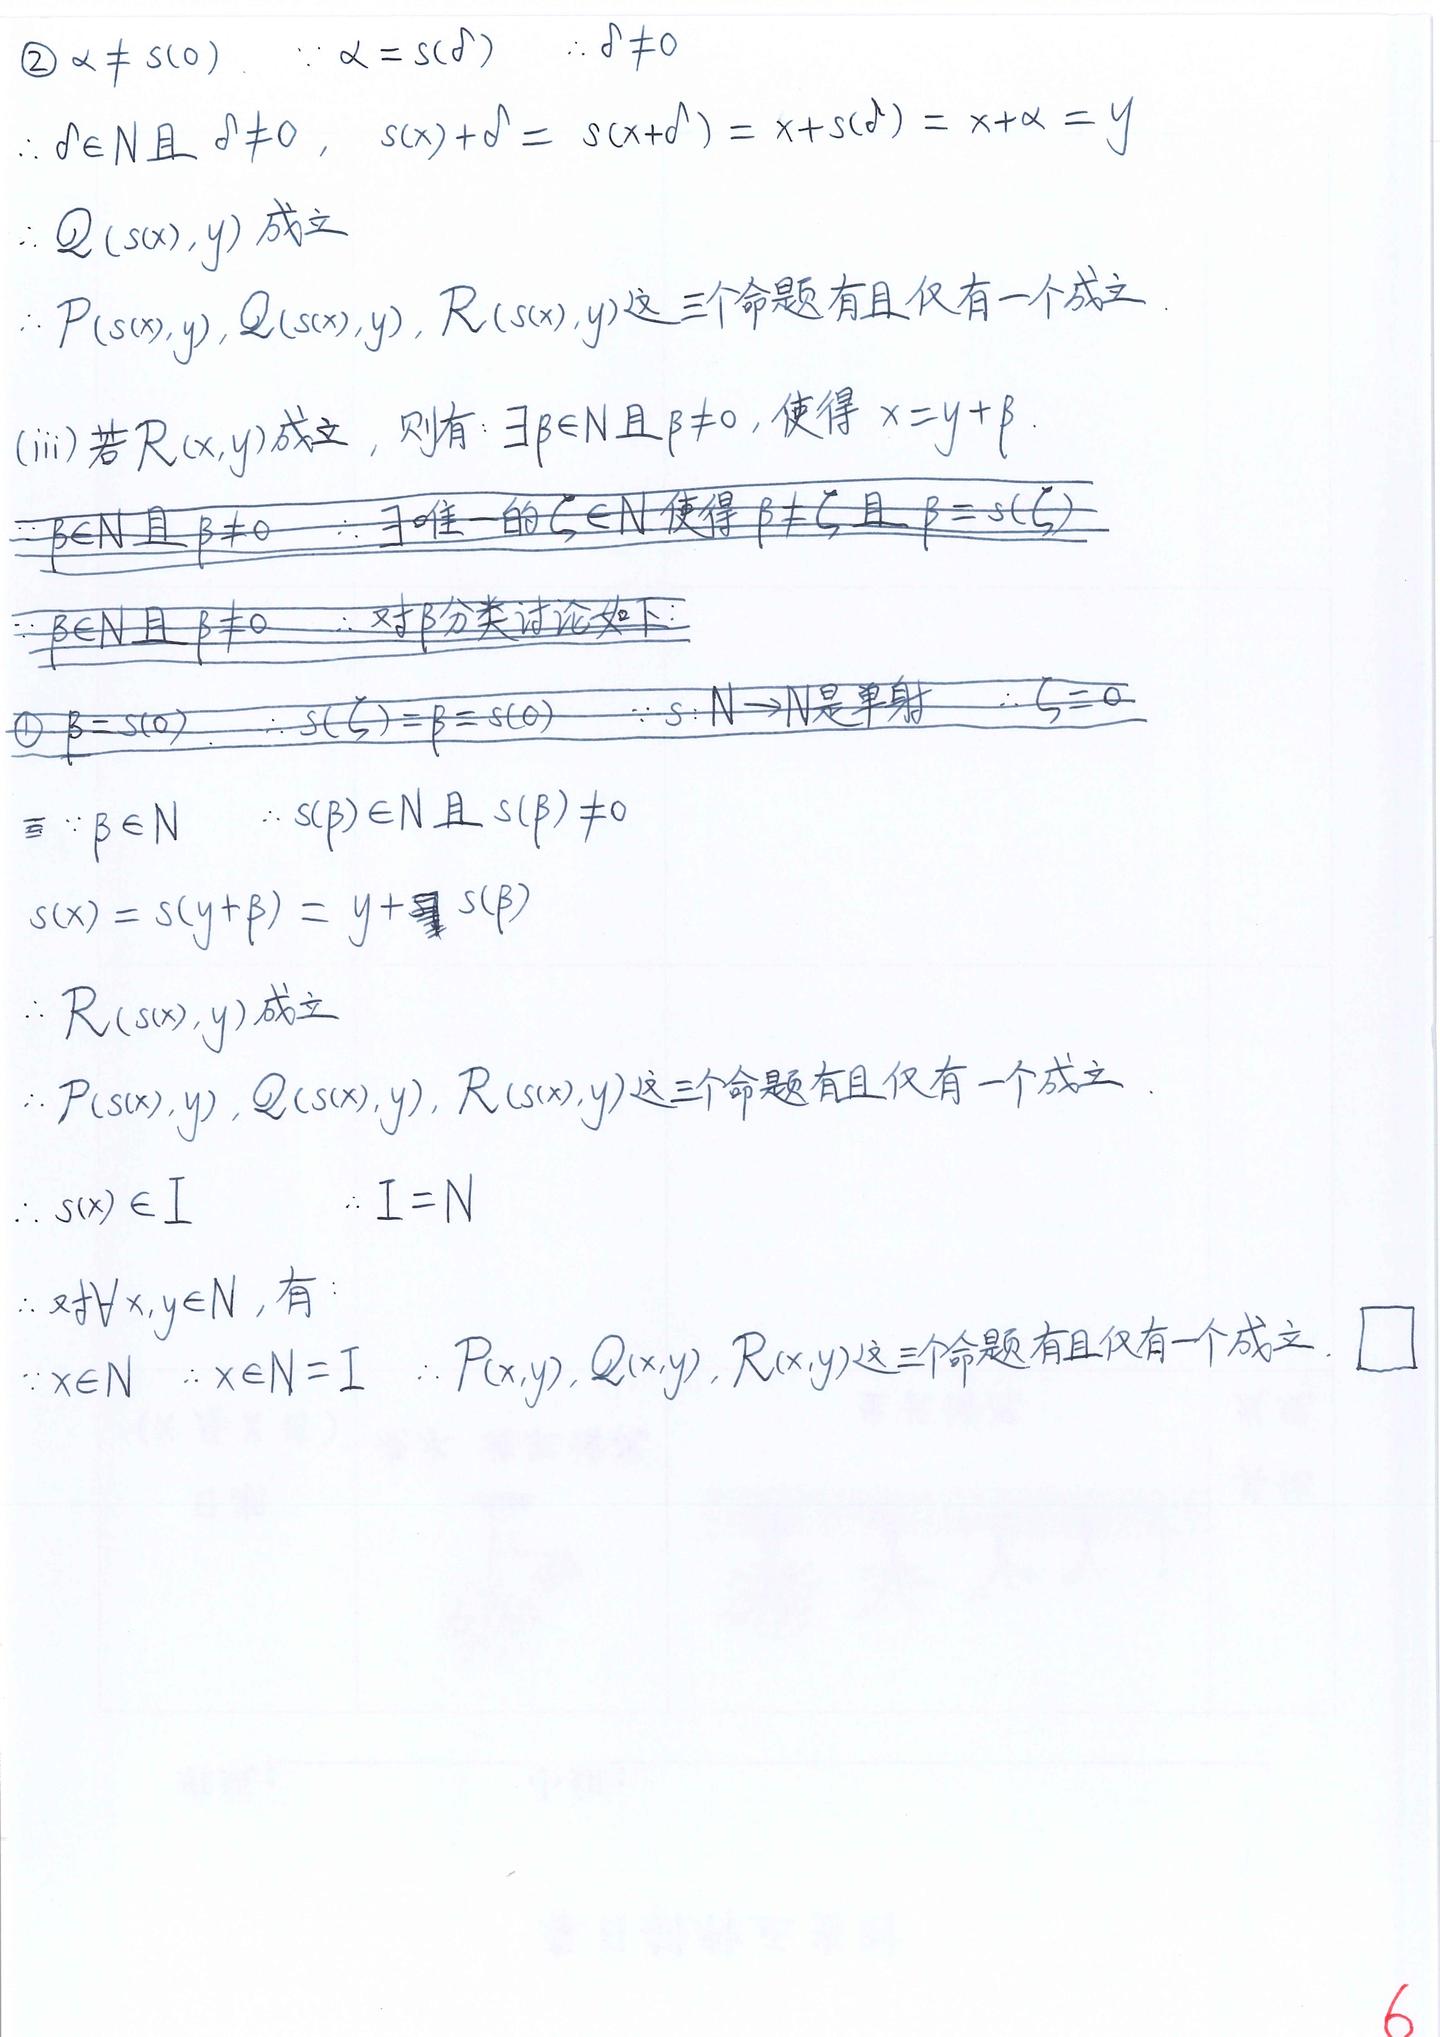 ② α ≠ s(0) ∵ α = s(δ) ∴ δ ≠ 0
∴ δ∈N 且 δ≠0, s(x)+δ = s(x+δ) = x+s(δ) = x+α = y
∴ Q(s(x), y) 成立
∴ P(s(x), y), Q(s(x), y), R(s(x), y) 这三个命题有且仅有一个成立.
(iii) 若R(x, y)成立, 则有: ∃β∈N且β≠0, 使得 x=y+β.
∵ β∈N 且 β≠0 ∴ ∃唯一的ζ∈N 使得 β≠ζ 且 β=s(ζ)
∵ β∈N 且 β≠0 ∴ 对β分类讨论如下:
① β=s(0). ∴ s(ζ)=β=s(0) ∵ s: N→N是单射 ∴ ζ=0
∵ β∈N ∴ s(β)∈N 且 s(β)≠0
s(x) = s(y+β) = y+ s(β)
∴ R(s(x), y) 成立
∴ P(s(x), y), Q(s(x), y), R(s(x), y) 这三个命题有且仅有一个成立.
∴ s(x)∈I ∴ I=N
∴ 对∀x, y∈N, 有:
∵ x∈N ∴ x∈N=I ∴ P(x, y), Q(x, y), R(x, y) 这三个命题有且仅有一个成立. □
6